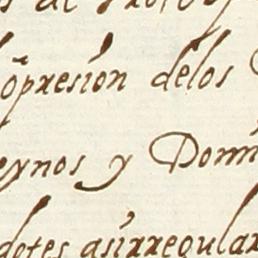 opresion delos
eynos y Domi
dotes asi rregular